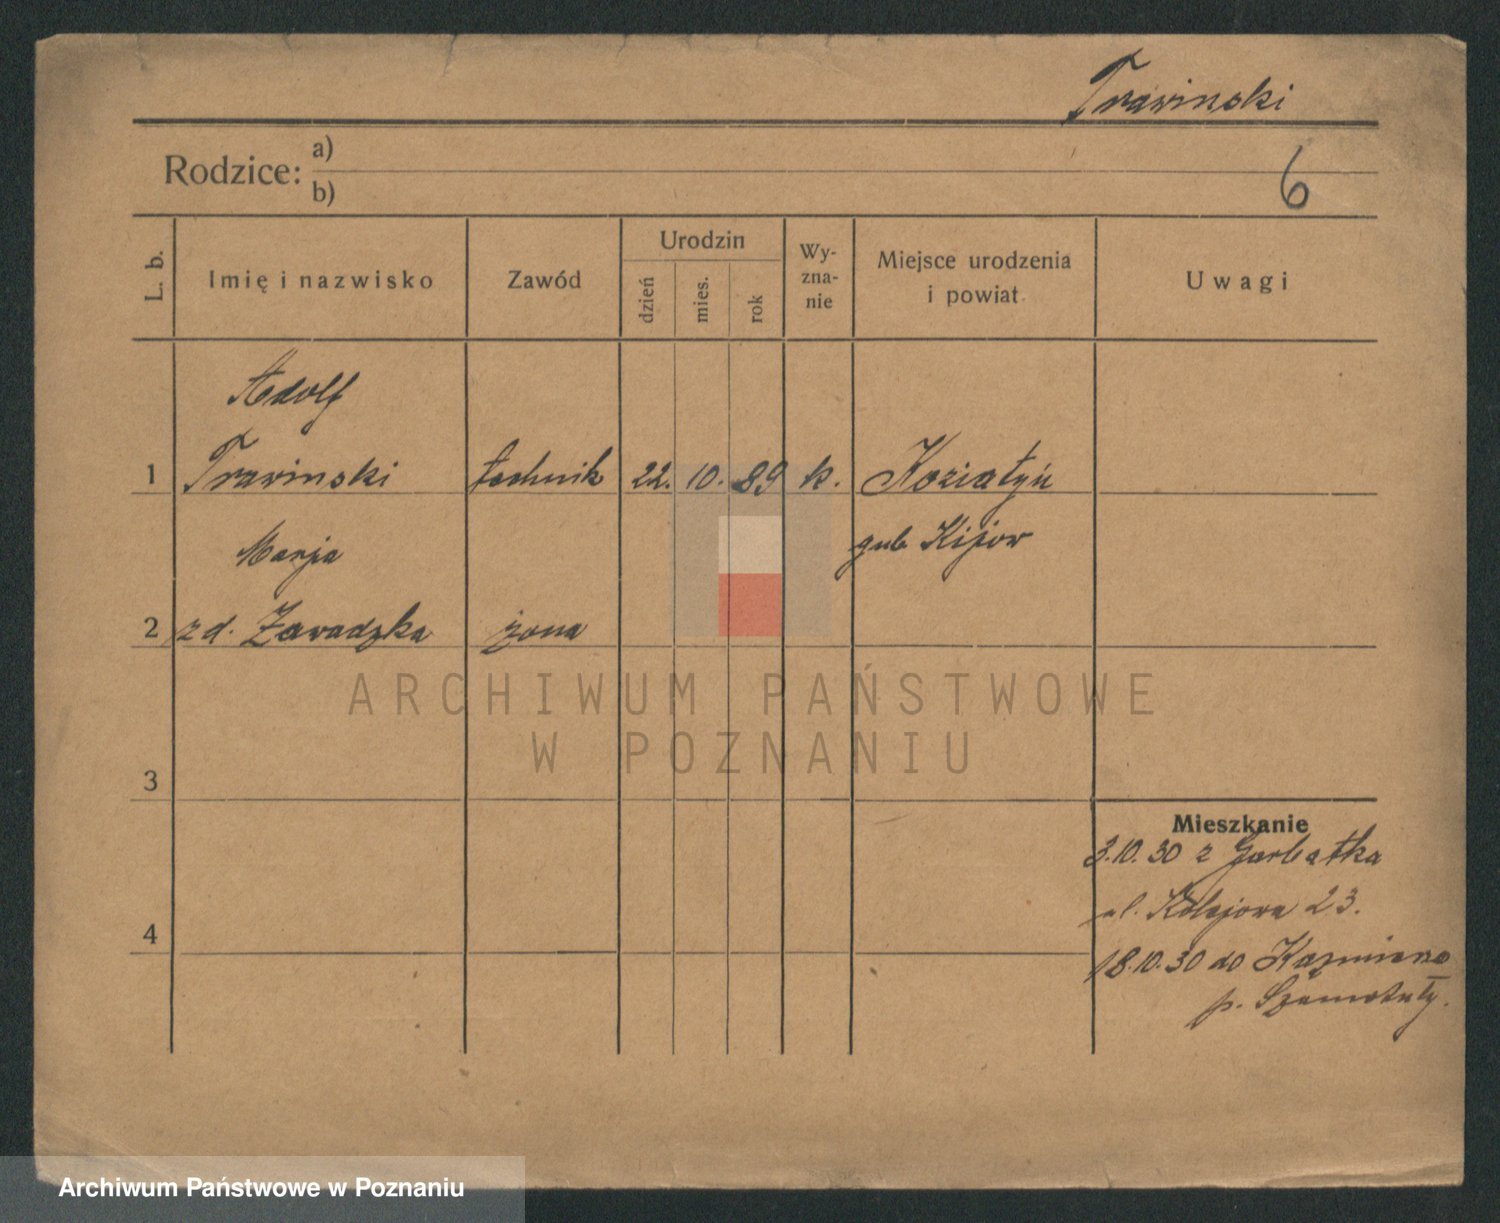 Trawinski
Rodzice: a)
b)
6
L. b.
Imię i nazwisko
Zawód
Urodzin
dzień
mies.
rok
Wy-
zna-
nie
Miejsce urodzenia
i powiat
Uwagi
Adolf
1 Trawinski technik 22. 10. 89 k. Koziatyń
gub. Kijów
Marja
2 z d. Zawadzka żona
ARCHIWUM PAŃSTWOWE
W POZNANIU
3
Mieszkanie
3.10.30 z Garbatka
ul. Kolejowa 23.
4
18.10.30 do Kazmierza
p. Szamotuły.
Archiwum Państwowe w Poznaniu